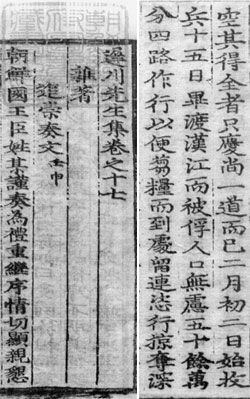 空其得全者只慶尚一道而已二月初二日始收
兵十五日畢渡漢江而被俘人口無慮五十餘萬
分四路作行以便芻糧而到處留連恣行掠奪深
遲川先生集卷之十七
雜著
追崇奏文 壬申
朝鮮國王臣姓某謹奏爲禮重繼序情切顯親懇